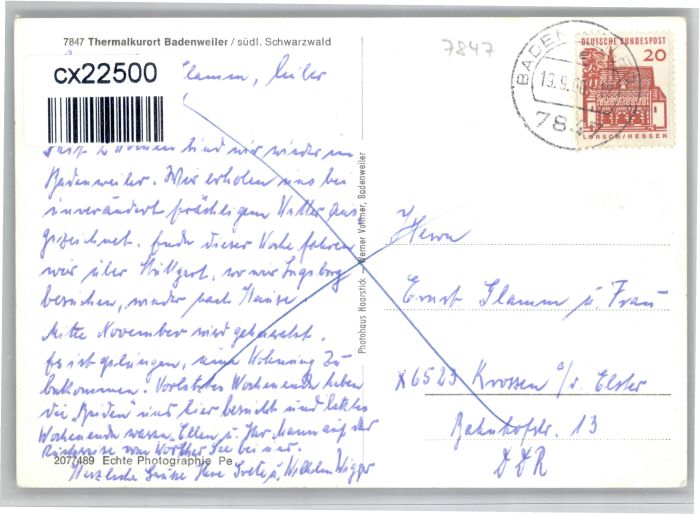 7847 Thermalkurort Badenweiler / südl. Schwarzwald
7847
cx22500
DEUTSCHE BUNDESPOST
20
LORSCH/HESSEN
BADEN
19.9.68
784
Flamm, lieber
2 Wochen sind wir wieder in
Badenweiler. Wir erholen uns bei
unverändert prächtigem Wetter aus-
gezeichnet. Ende dieser Woche fahren
wir über Stuttgart, wo wir Ingeborg
besuchen, wieder nach Hause.
Mitte November wird geheiratet.
Es ist gelungen, eine Wohnung zu
bekommen. Vorletztes Wochenende haben
die "Beiden" uns hier besucht und letztes
Wochenende waren Ellen u. Ihr Mann auf der
Rückreise vom Wörther See bei uns.
Herzliche Grüße Ihre Grete u. Wilhelm
2077489 Echte Photographie Pe
Photohaus Haarstick – Werner Vollmer, Badenweiler
Herrn
Ernst Flamm u. Frau
X6523 Krossen a/d. Elster
Bahnhofstr. 13
DDR